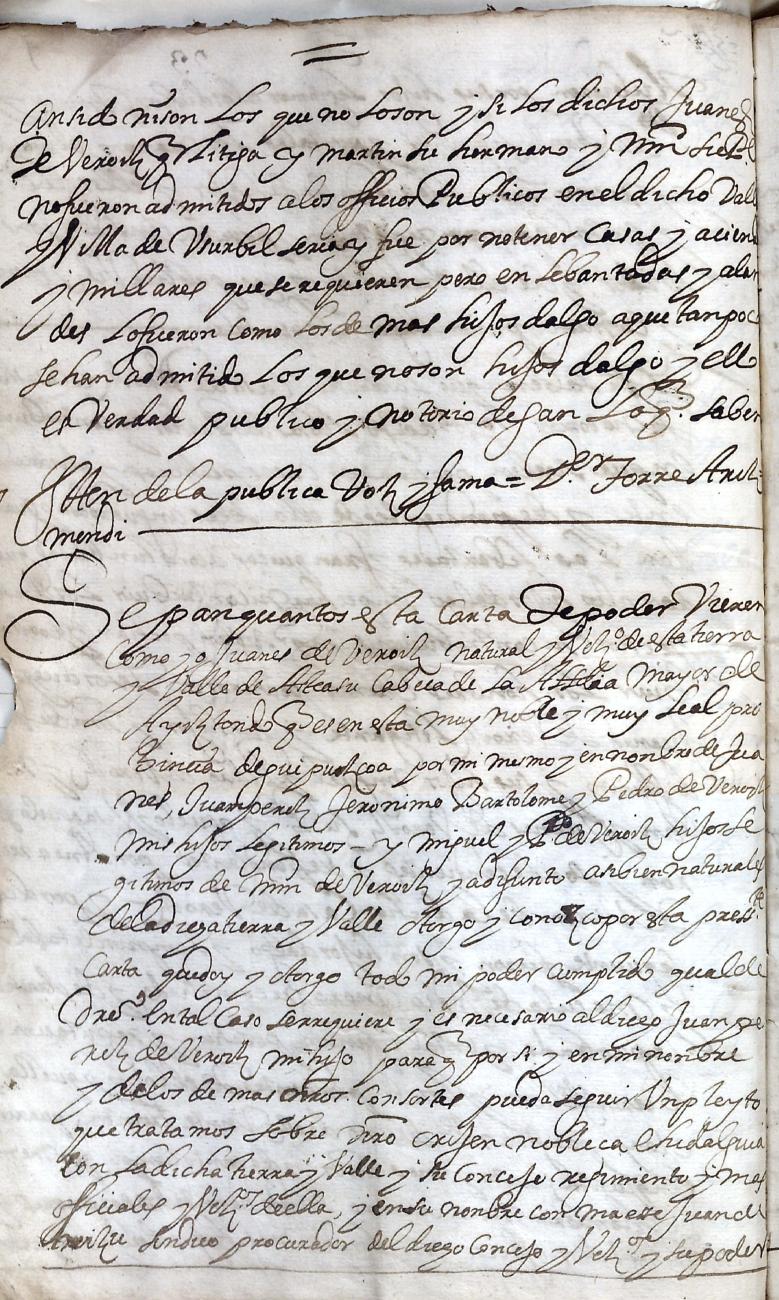 an sido ni son Los que no Lo son y si Los dichos Juanes
de Veroiz q Litiga y martin su hermano y mrn su
no fueron admitidos a los officios Publicos en el dicho Valle
y Villa de Usurbil seria y fue por no tener Casas y acien
y millares que se requieren pero en Lebantadas y alar
des Lo fueron como Los de mas hijos dalgo a que tampoc
se han admitido Los que no son hijos dalgo y ello
es Verdad publico y notorio de San saben
Itten de la publica Voz y fama = D.or Torre Ariz
mendi
Sepan quantos esta Carta de poder Vieren
Como yo Juanes de Veroiz natural y Vez.o de esta tierra
y Valle de Asteasu Cabeca de La Alcaldia mayor de
Ayztondo q es en esta muy noble y muy Leal pro
bincia de guipuzcoa por mi mesmo y en nonbre de Jua
nes, Juamperez Jeronimo Bartolome y Pedro de Veroiz
mis hijos Legitimos - y miguel y P.o de Veroiz hijos Le
gitimos de mrn de Veroiz ya difunto asi bien naturales
de La diega tierra y Valle otorgo y conozco por esta press.te
Carta que doy y otorgo todo mi poder cumplido qual de
dre.o En tal Caso se rrequiere y es necesario al diego Juan pe
rez de Veroiz mi hijo para q por si y en mi nonbre
y de los de mas nros. Consortes pueda seguir Un pleyto
que tratamos sobre nro orijen nobleca E hidalguia
con La dicha tierra y Valle y su Concejo regimiento y mas
officiales y Vez.os de ella, y en su nonbre con maese Juan de
sindico procurador del diego Concejo y Vez.os y su poder